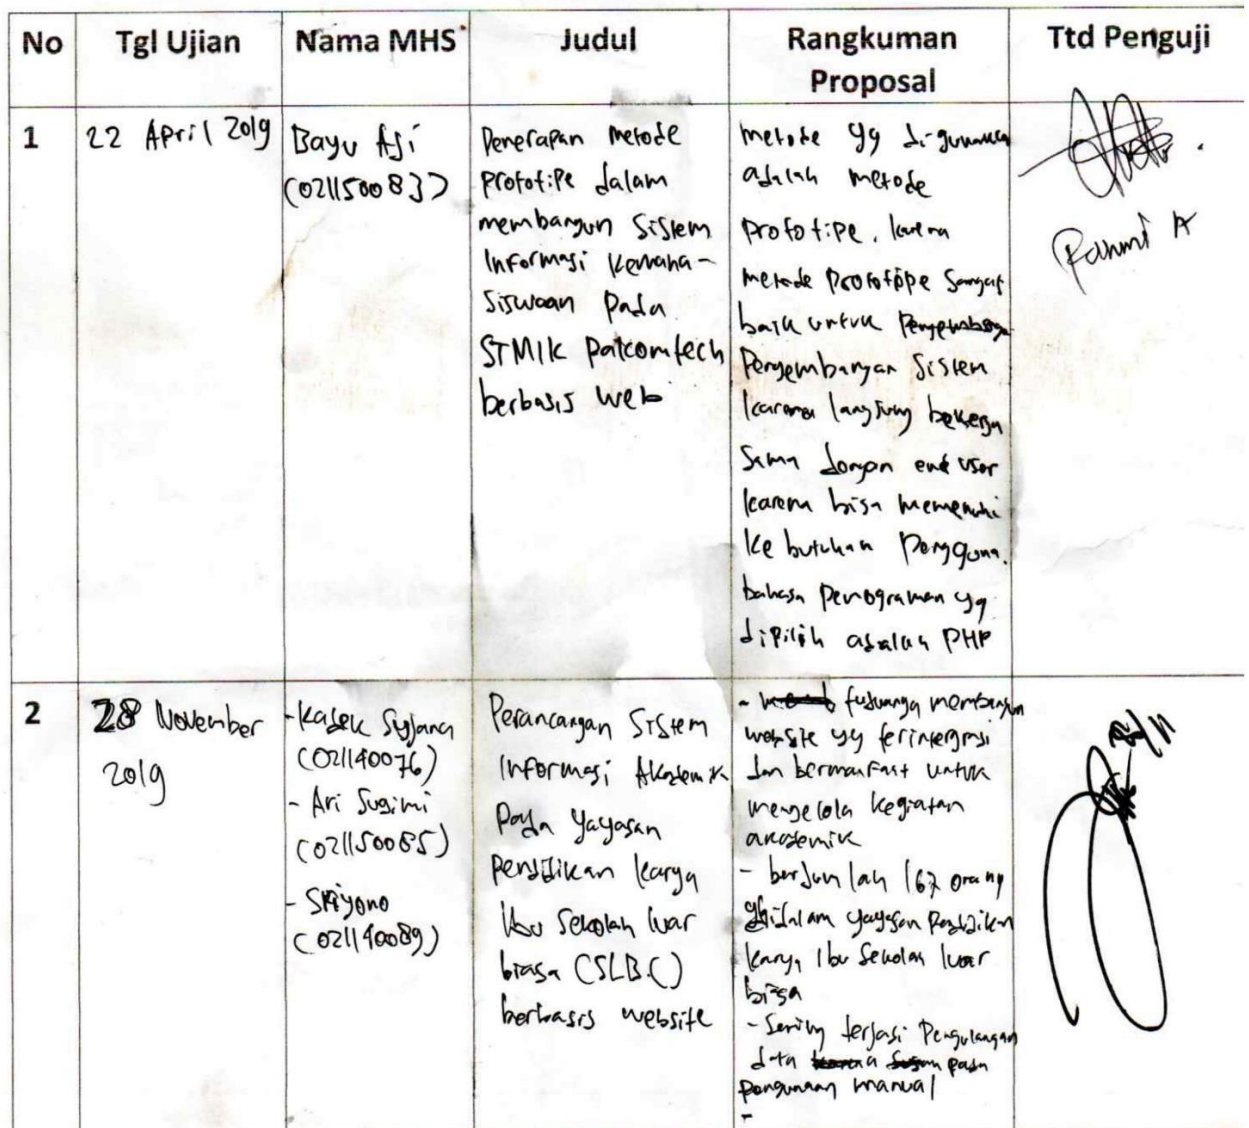 No
Tgl Ujian
Nama MHS
Judul
Rangkuman
Proposal
Ttd Penguji
1
22 April 2019
Bayu Aji
(021150083)
Penerapan metode
prototipe dalam
membangun Sistem
Informasi Kemaha-
siswaan pada
STMIK Palcomtech
berbasis Web
metode yg digunakan
adalah metode
prototipe, karena
metode prototipe sangat
baik untuk
Pengembangan Sistem
karena langsung bekerja
sama dengan end user
karena bisa memenuhi
kebutuhan Pengguna.
bahasa pemrograman yg
dipilih adalah PHP
Rahmi A
2
28 November
2019
- Kadek Sujana
(021140076)
- Ari Sugimi
(021150085)
-
(021140089)
Perancangan Sistem
Informasi Akademik
Pada Yayasan
Pendidikan Karya
Ibu Sekolah luar
biasa (SLB.C)
berbasis website
- membangun
website yg terintegrasi
dan bermanfaat untuk
mengelola kegiatan
akademik
- berjumlah 167 orang
yayasan Pendidikan
karya Ibu Sekolah luar
biasa
- Sering terjadi Pengulangan
data pada
manual
-